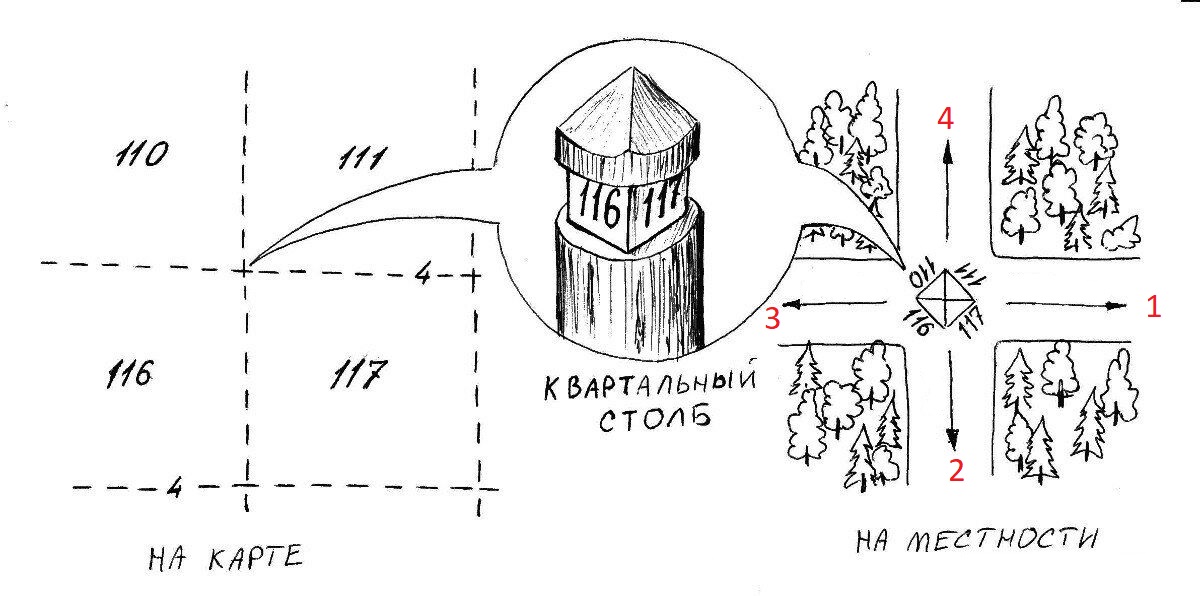 110
111
4
116
117
4
НА КАРТЕ
116 117
КВАРТАЛЬНЫЙ
СТОЛБ
4
110 111
3
1
116 117
2
НА МЕСТНОСТИ